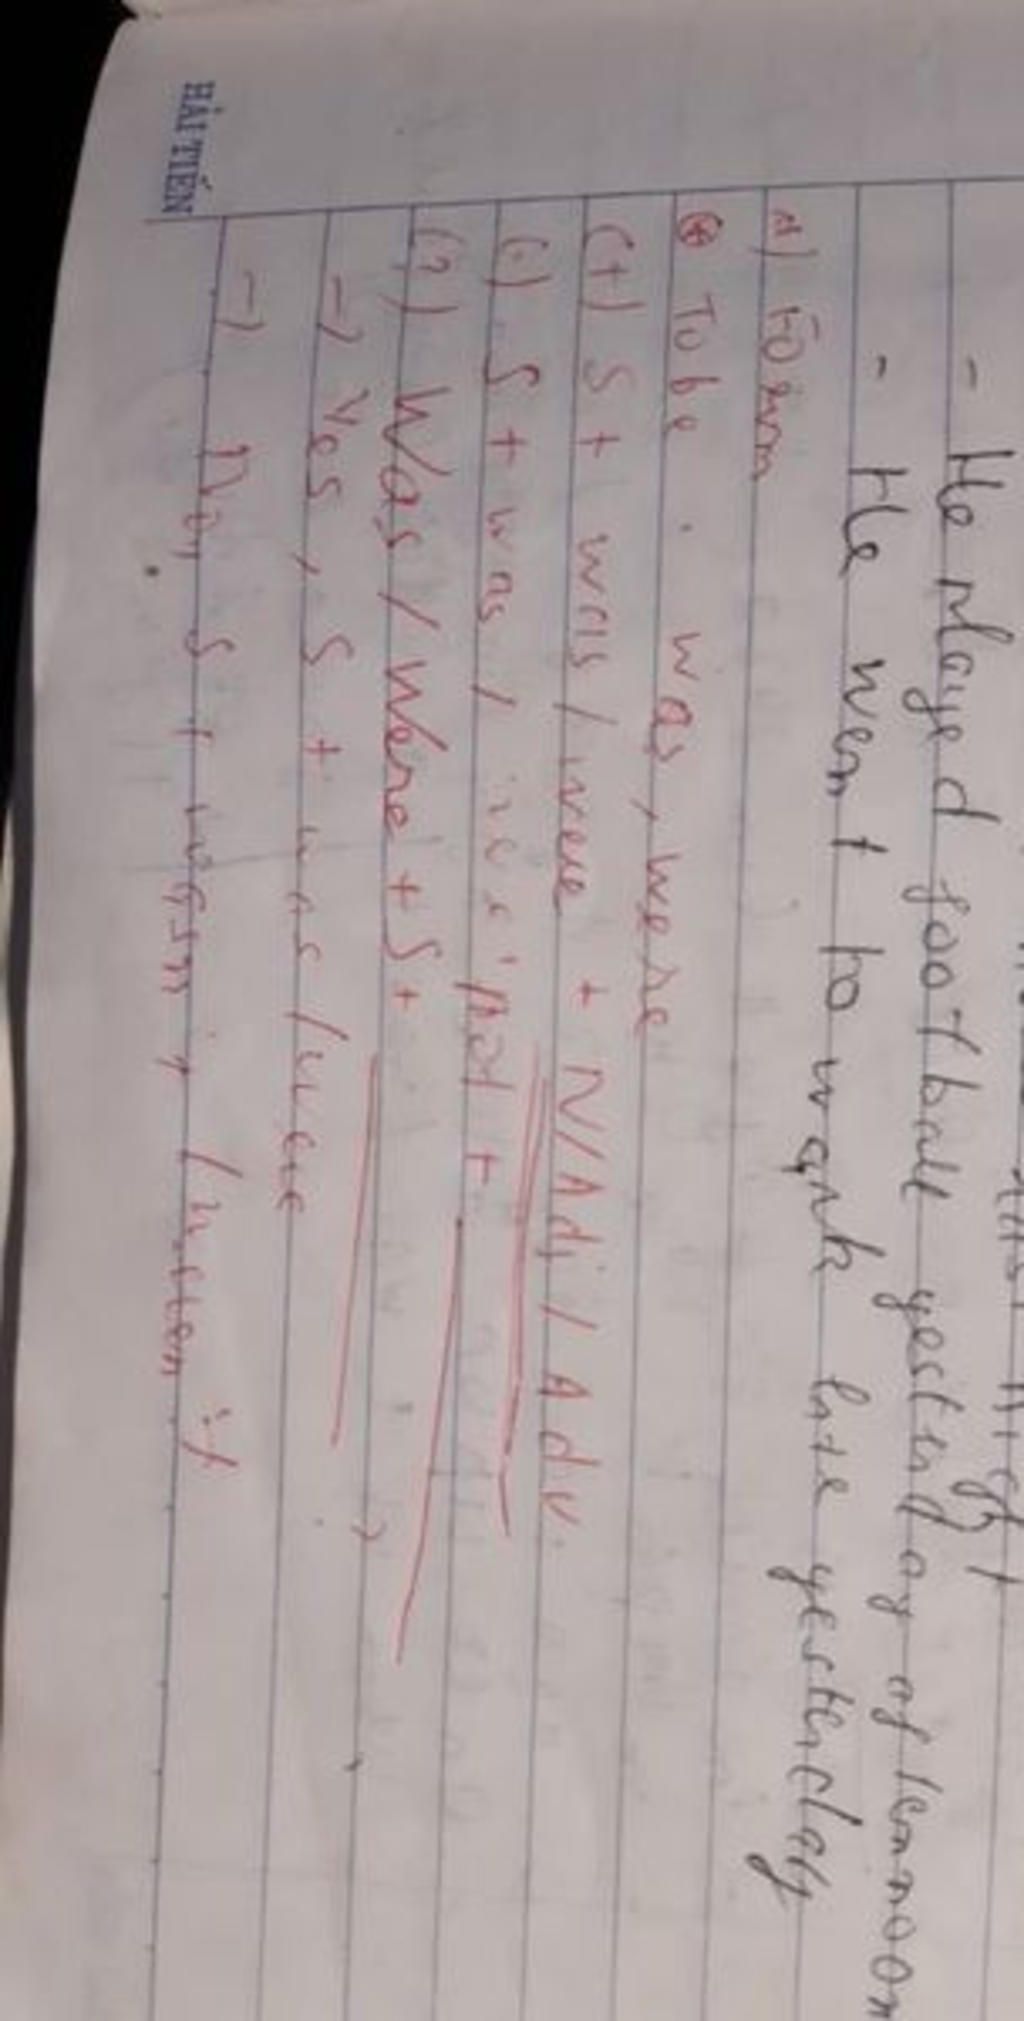 last night
- He played football yesterday afternoon
- He went to work late yesterday
1) Form
⊛ To be : was, were
(+) S + was / were + N/Adj / Adv
(-) S + was / were not +
(?) Was / Were + S + ?
→ Yes, S + was / were
→ No, S + wasn't / weren't
HẢI TIẾN